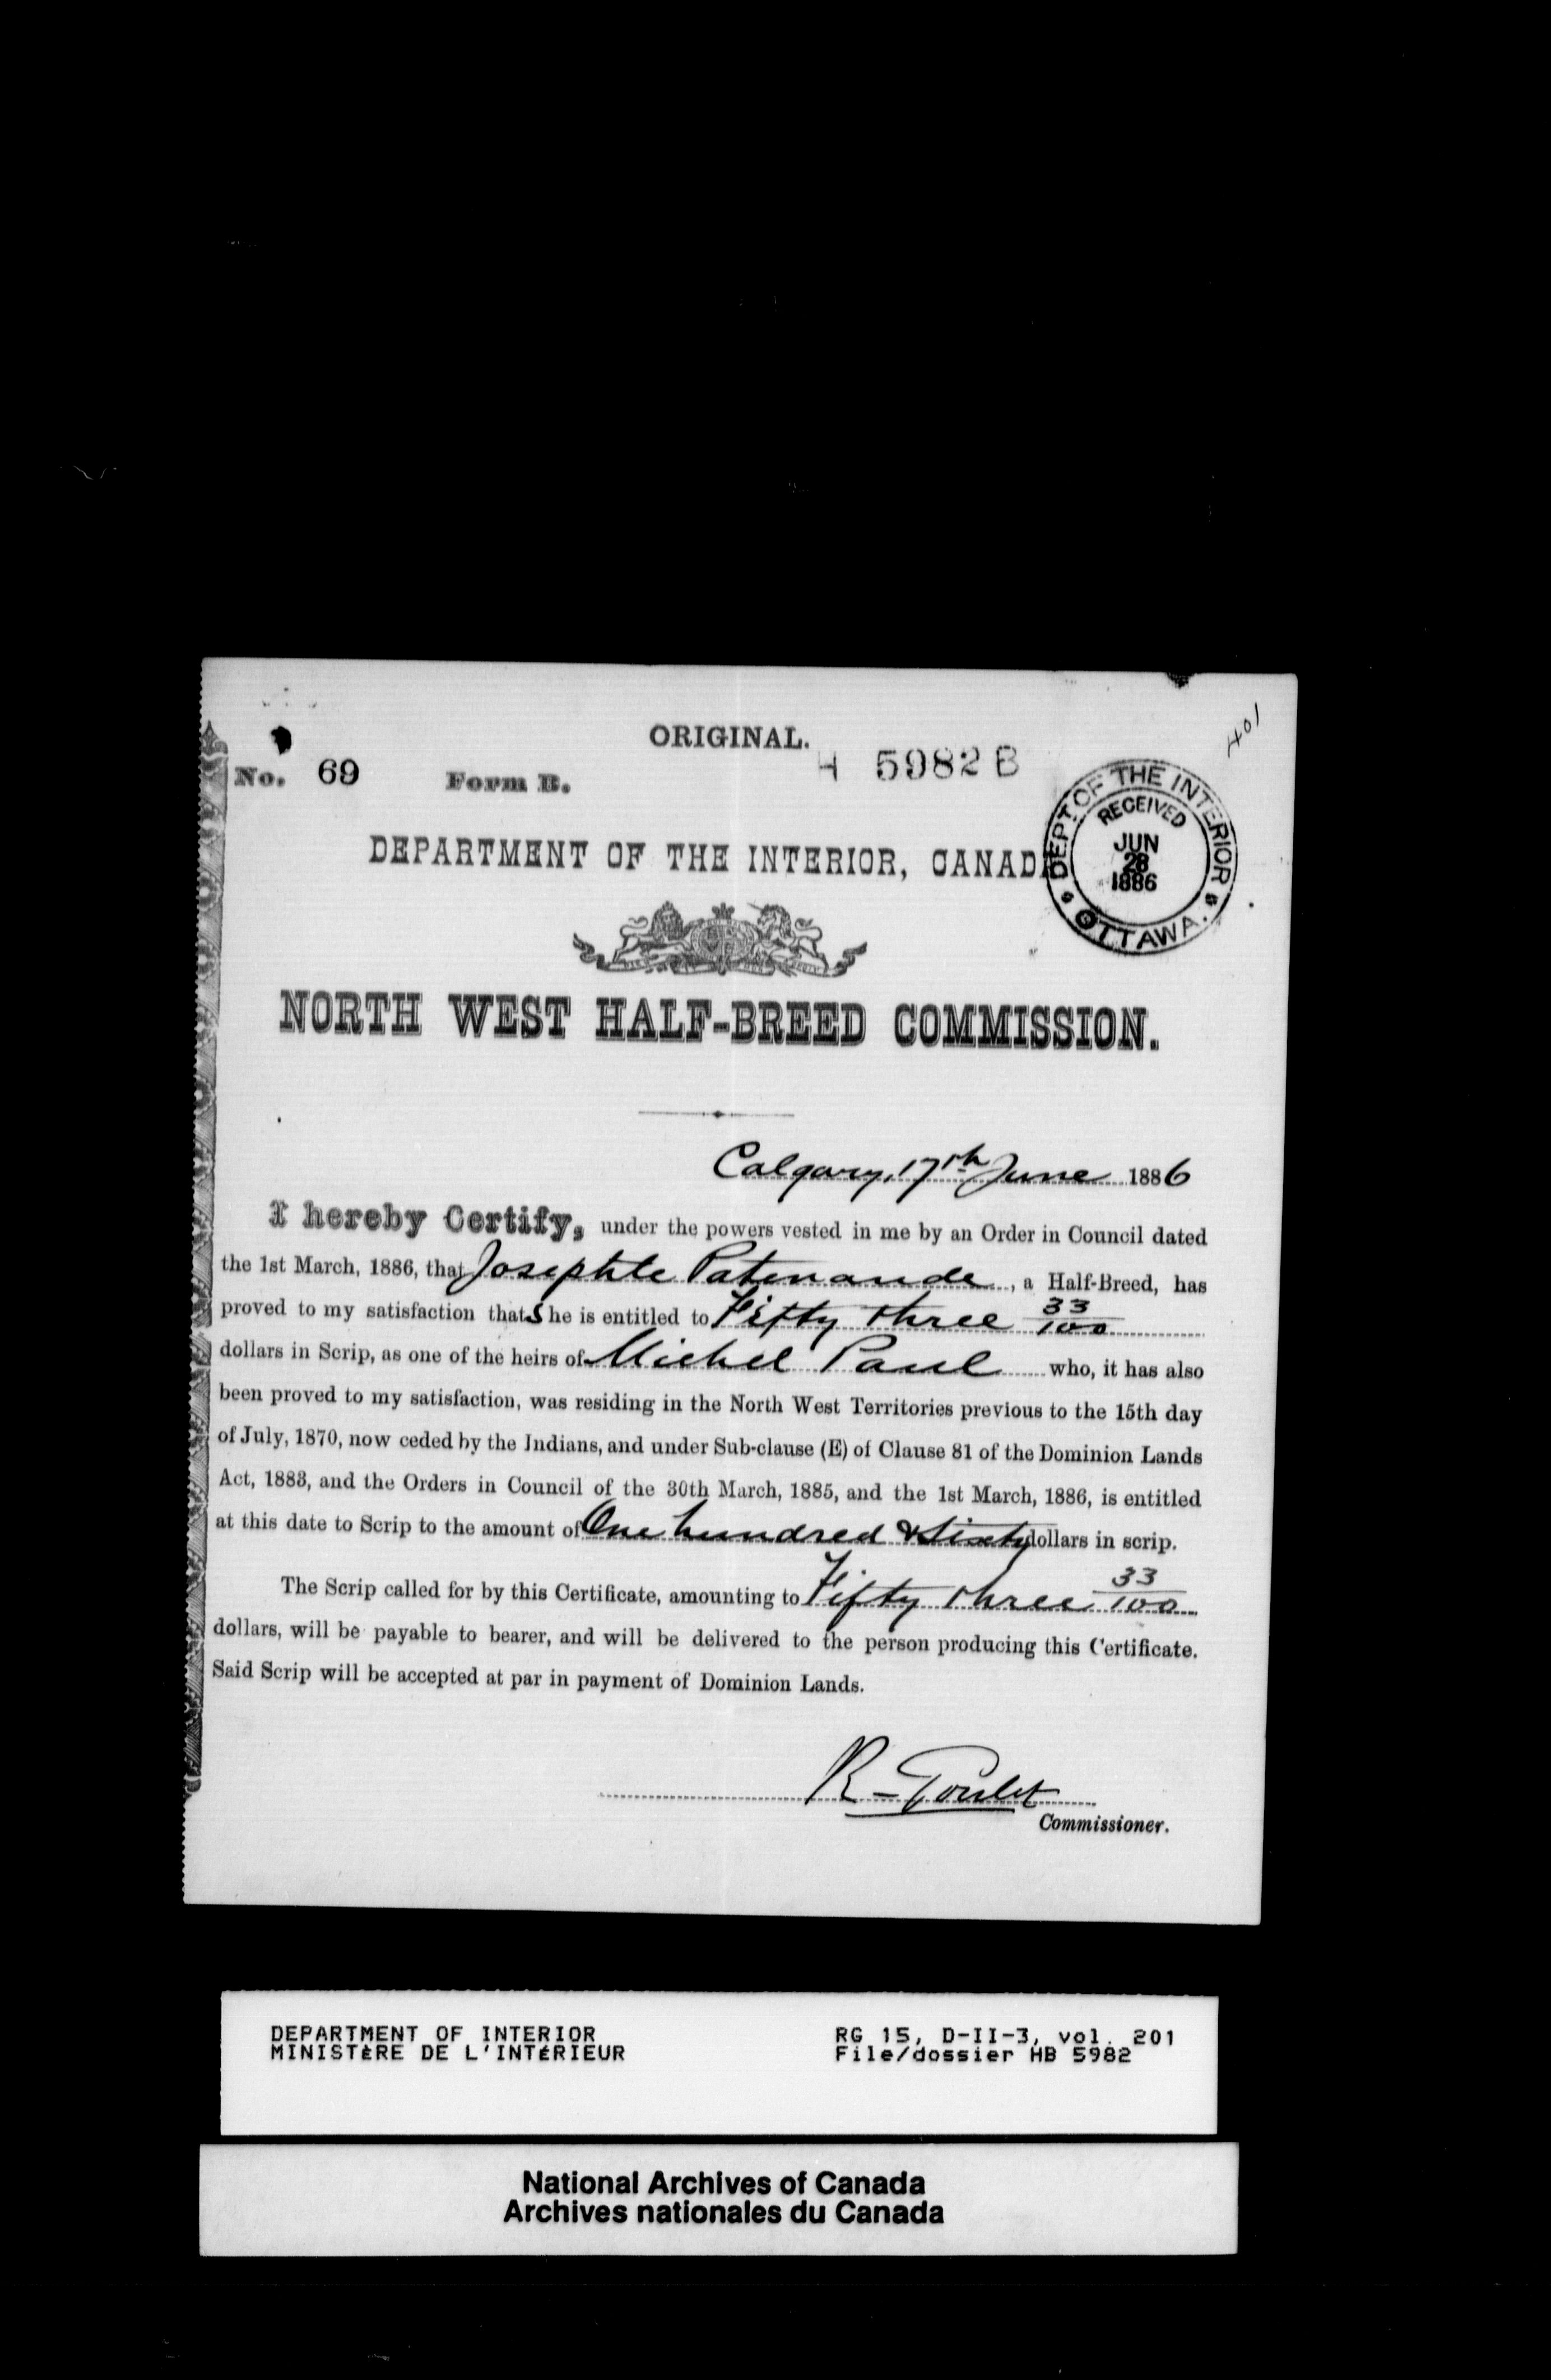 401
ORIGINAL.
H 5982 B
No. 69 Form B.
DEPT. OF THE INTERIOR
RECEIVED
JUN
28
1886
OTTAWA.
DEPARTMENT OF THE INTERIOR, CANADA
NORTH WEST HALF-BREED COMMISSION.
Calgary, 17th June 1886
I hereby Certify, under the powers vested in me by an Order in Council dated
the 1st March, 1886, that Josephte Patenaude, a Half-Breed, has
proved to my satisfaction that She is entitled to Fifty three 33/100
dollars in Scrip, as one of the heirs of Michel Paul who, it has also
been proved to my satisfaction, was residing in the North West Territories previous to the 15th day
of July, 1870, now ceded by the Indians, and under Sub-clause (E) of Clause 81 of the Dominion Lands
Act, 1883, and the Orders in Council of the 30th March, 1885, and the 1st March, 1886, is entitled
at this date to Scrip to the amount of One hundred & Sixty dollars in scrip.
The Scrip called for by this Certificate, amounting to Fifty three 33/100
dollars, will be payable to bearer, and will be delivered to the person producing this Certificate.
Said Scrip will be accepted at par in payment of Dominion Lands.
R. Goulet
Commissioner.
DEPARTMENT OF INTERIOR
MINISTÈRE DE L'INTÉRIEUR
RG 15, D-II-3, vol. 201
File/dossier HB 5982
National Archives of Canada
Archives nationales du Canada